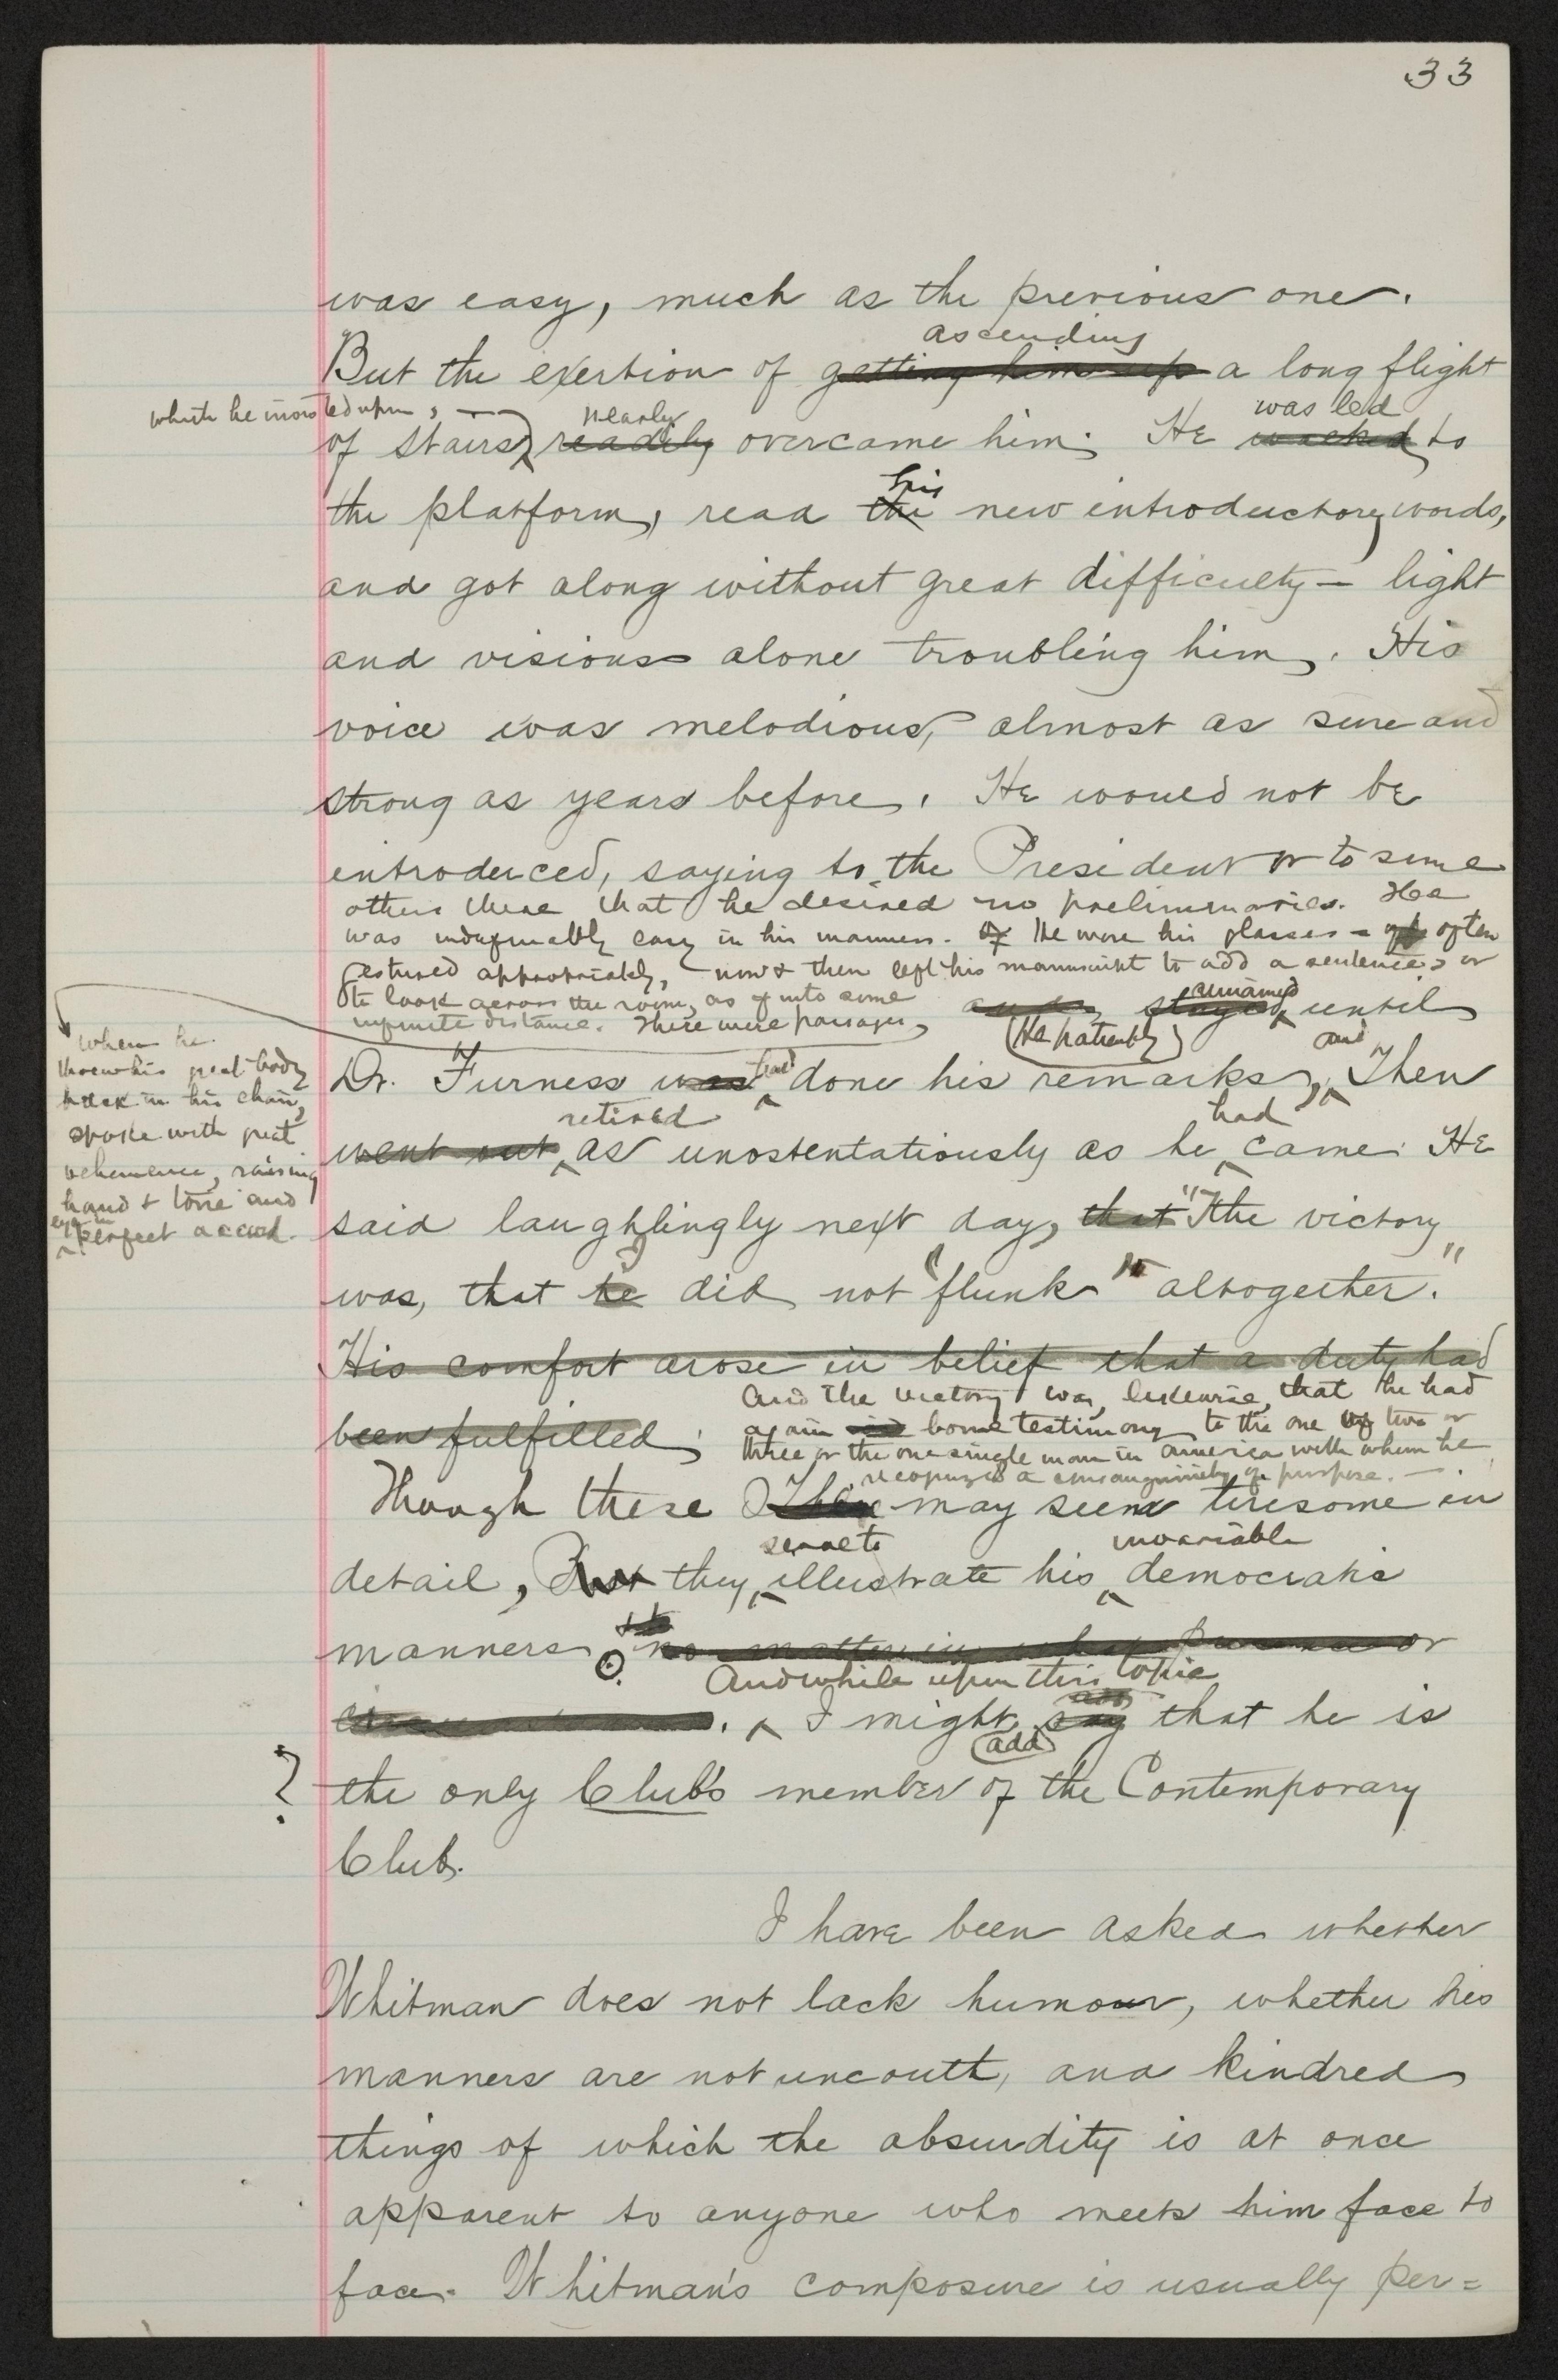 33
was easy, much as the previous one.
ascending
But the exertion of getting him up a long flight
which he insisted upon, nearly was led
of stairs, readily overcame him. He walked to
his
the platform, read the new introductory words,
and got along without great difficulty — light
and visions alone troubling him. His
voice was melodious, almost as sure and
strong as years before. He would not be
introduced, saying to the President or to some
others there that he desired no preliminaries. He
was indefinably easy in his manner. He wore his glasses — often
gestured appropriately, now & then left his manuscript to add a sentence, or
to look across the room, as if into some
infinite distance. There were passages,
when he
threw his great body
back in his chair,
spoke with great
vehemence, raising
hand & tone and
eye in perfect accord.
and stayed until
(He patiently) and
Dr. Furness was had done his remarks, Then
retired had
went out as unostentatiously as he came. He
said laughlingly next day, that "The victory
was, that he did not "flunk" altogether."
His comfort arose in belief that a duty had
been fulfilled;
And the victory was, likewise, that he had
again borne testimony to the one of two or
three or the one single man in America with whom he
recognizes a consanguinity of purpose. —
Though these may seem tiresome in
serve to invariable
detail, But they illustrate his democratic
manners no matter in what or
And while upon this topic
. I might say that he is
add
? the only Club's member of the Contemporary
Club.
I have been asked whether
Whitman does not lack humour, whether his
manners are not uncouth, and kindred
things of which the absurdity is at once
apparent to anyone who meets him face to
face. Whitman's composure is usually per=